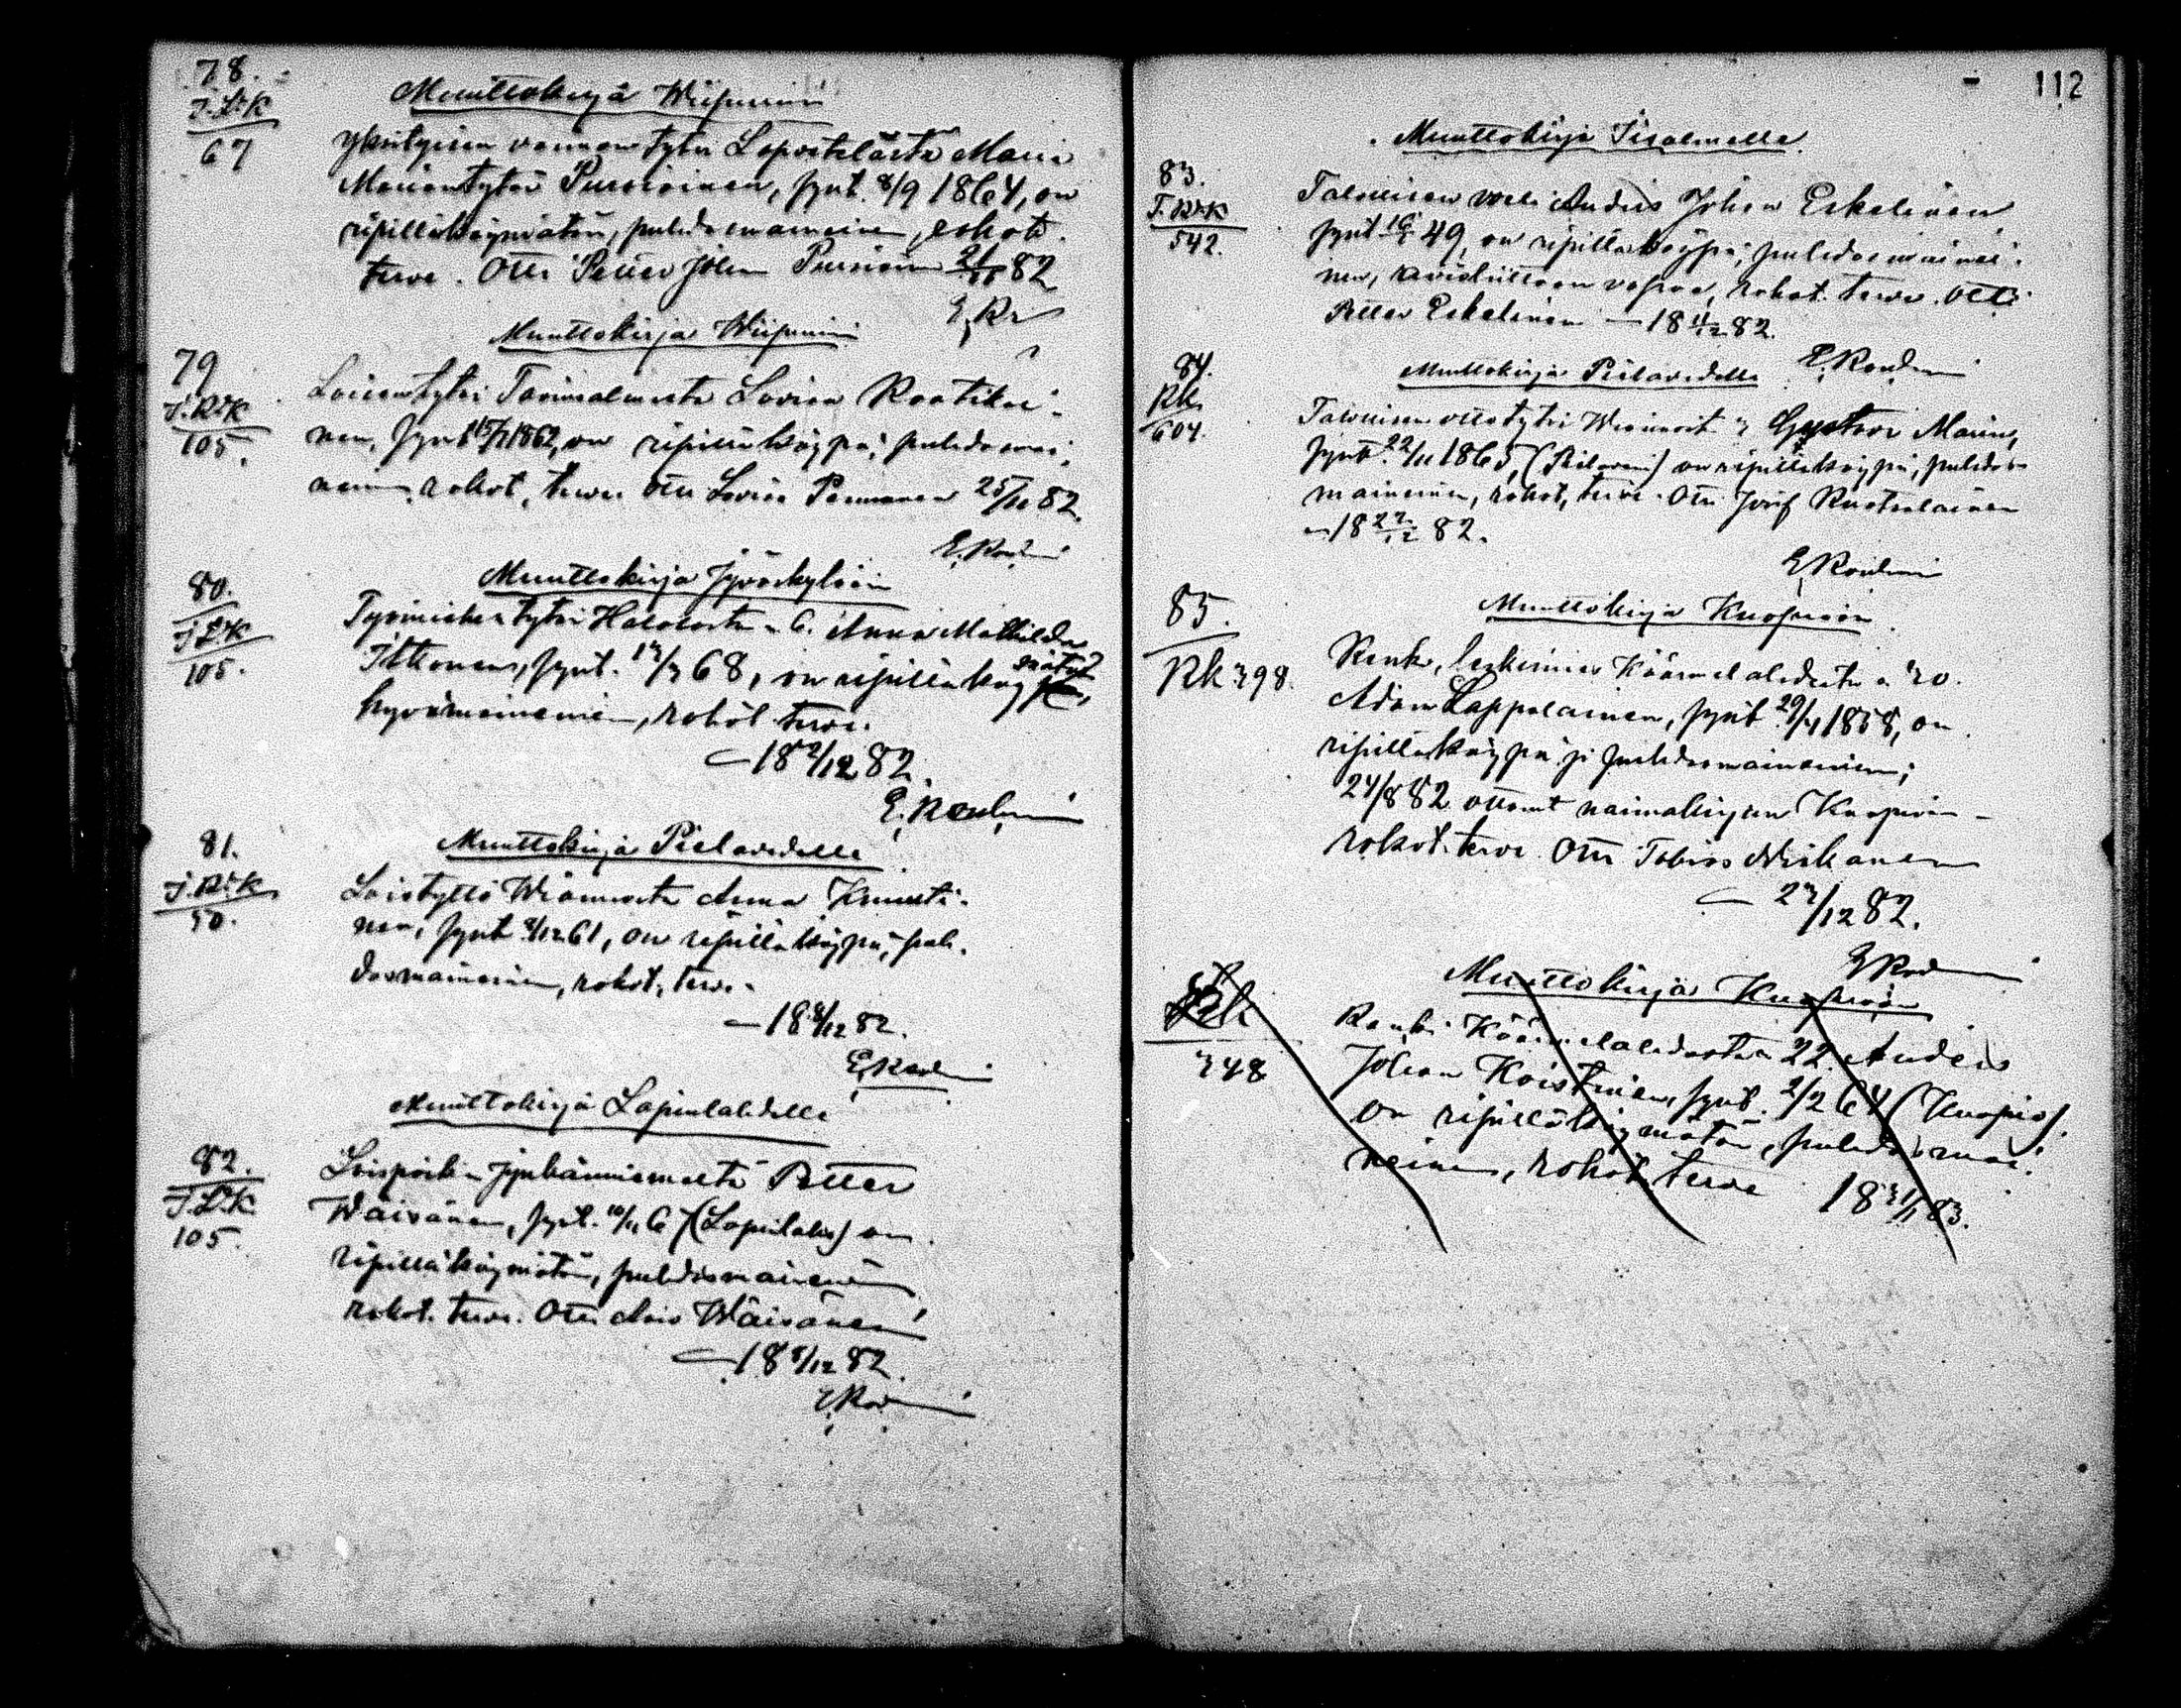 78.
I.L.K
67
Muuttokirja Wiipuriin
yksityisen vaimon tytär Lapvetelästä Maria
Mariantytär Pursiainen, synt. 8/9 1864, on
ripilläkäymätön, puhdasmaineinen, rokot.
terve. Otti Petter Johan Pursiainen 21/11 82
E. Ro
Muuttokirja Wiipuriin
79
I.R.K
105.
Loisentytär Tavinsalmesta Lovisa Raatikai-
nen, synt 15/7 1862, on ripilläkäypä, puhdasmai-
neinen, rokot, terve Otti Lovisa Pennanen 25/11 82.
E. Roulami
Muuttokirja Jyväskylään
80.
I.L.K
105.
Työmiehen tytär Halolasta 6. Anna Mathilda
Itkonen, synt. 17/7 68, on ripilläkäy mätön
hyvämaineinen, rokot. terve.
— 18 2/12 82.
E. Roulami
81.
I.R.K
50.
Muuttokirja Pielavedelle
Loistyttö Wiannosta Anna Knuuti-
nen, synt 9/12 61, on ripilläkäypä, puh-
dasmaineinen, rokot, terve.
— 18 8/12 82.
E. Roulami
Muuttokirja Lapinlahdelle
82.
I.L.K
105.
Loispoika Jynkänniemeltä Petter
Wäisänen, synt. 10/11 67 (Lapinlahti) on
ripilläkäymätön, puhdasmaineinen
rokot. terve. Otti Wäisänen
— 18 8/12 82.
E. Roulami
112
Muuttokirja Iisalmelle
83.
I.R.K
542.
Talollisen veli Anders Johan Eskelinen
synt 49, on ripilläkäypä, puhdasmainei-
nen, avioliittoon vapaa, rokot. terve. Otti
Petter Eskelinen — 18 11/12 82.
E. Roulami
84.
RK
604.
Muuttokirja Pielavedelle
Talollisen ottotytär Wiannost 3 Gustava Maria,
synt. 22/11 1865, (Pielavesi) on ripilläkäypä, puhdas-
maineinen, rokot, terve. Otti Josef Rautalainen
— 18 22/12 82.
E. Roulami
85.
RK 398.
Muuttokirja Kuopioon
Renk, leskimies Käärmelahdesta 20.
Adam Lappalainen, synt 29/4 1858, on
ripilläkäypä ja puhdasmaineinen;
24/8 82 ottanut naimakirjan Kuopioon
rokot. terve Otti Tobias Niskanen
— 27/12 82.
E. Roulami
Muuttokirja Kuopioon
RK
348
Renki Käärmelahdesta 22 Anders
Johan Koistinen, synt. 2/2 64 (Kuopio).
on ripilläkäymätön, puhdasmai-
neinen, rokot. terve 18 31/1 83.